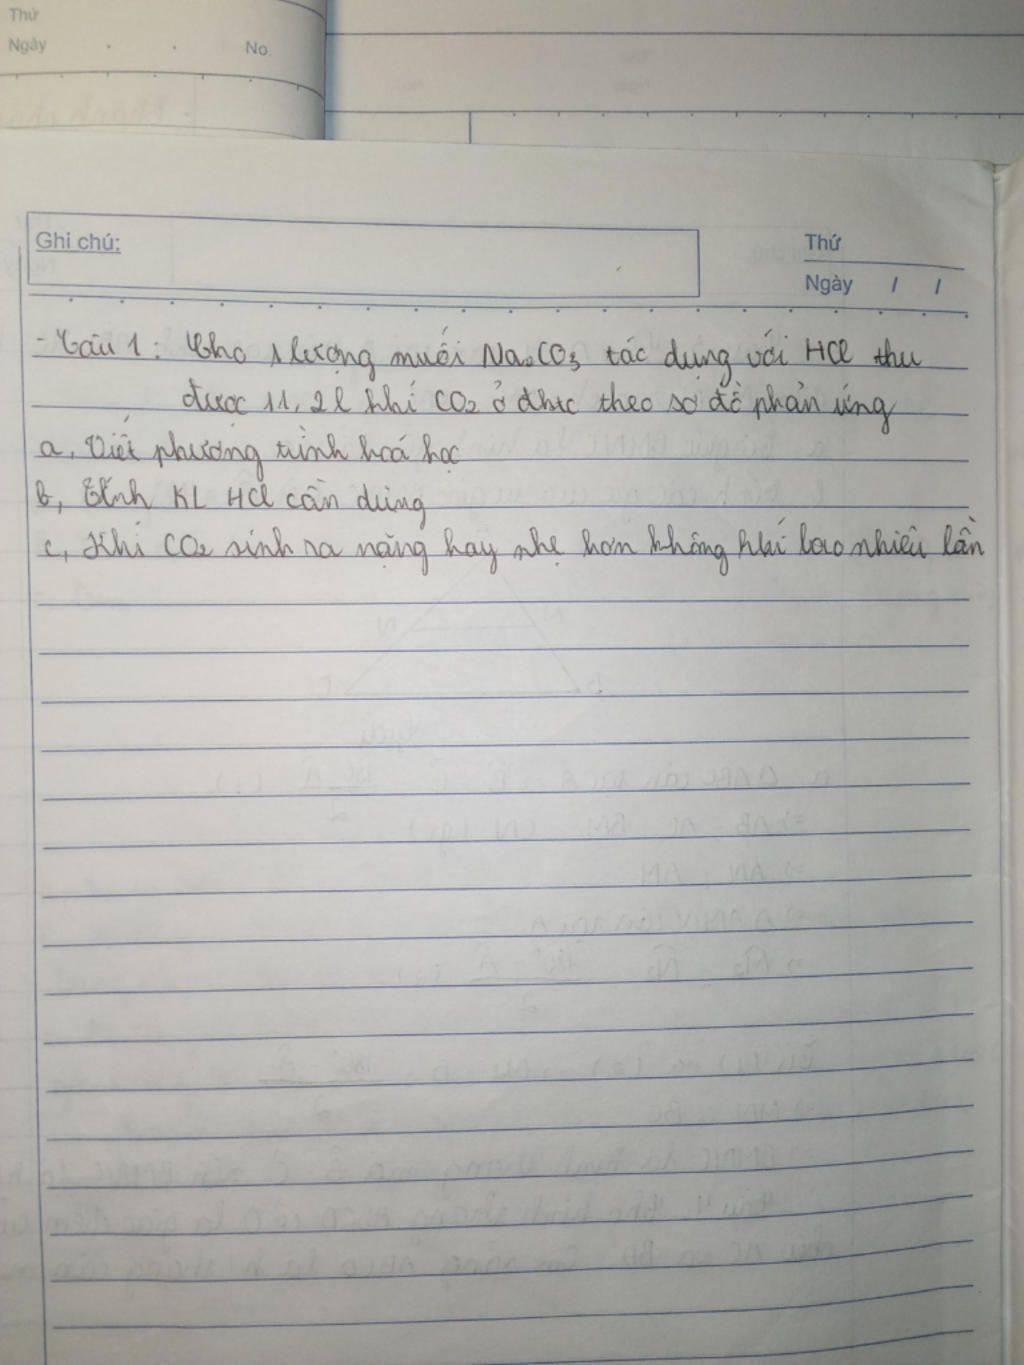 Thứ
Ngày
No.
Ghi chú:
Thứ
Ngày / /
- Câu 1: Cho 1 lượng muối Na₂CO₃ tác dụng với HCl thu
được 11,2l khí CO₂ ở đktc theo sơ đồ phản ứng
a, Viết phương trình hoá học
b, Tính KL HCl cần dùng
c, Khí CO₂ sinh ra nặng hay nhẹ hơn không khí bao nhiêu lần